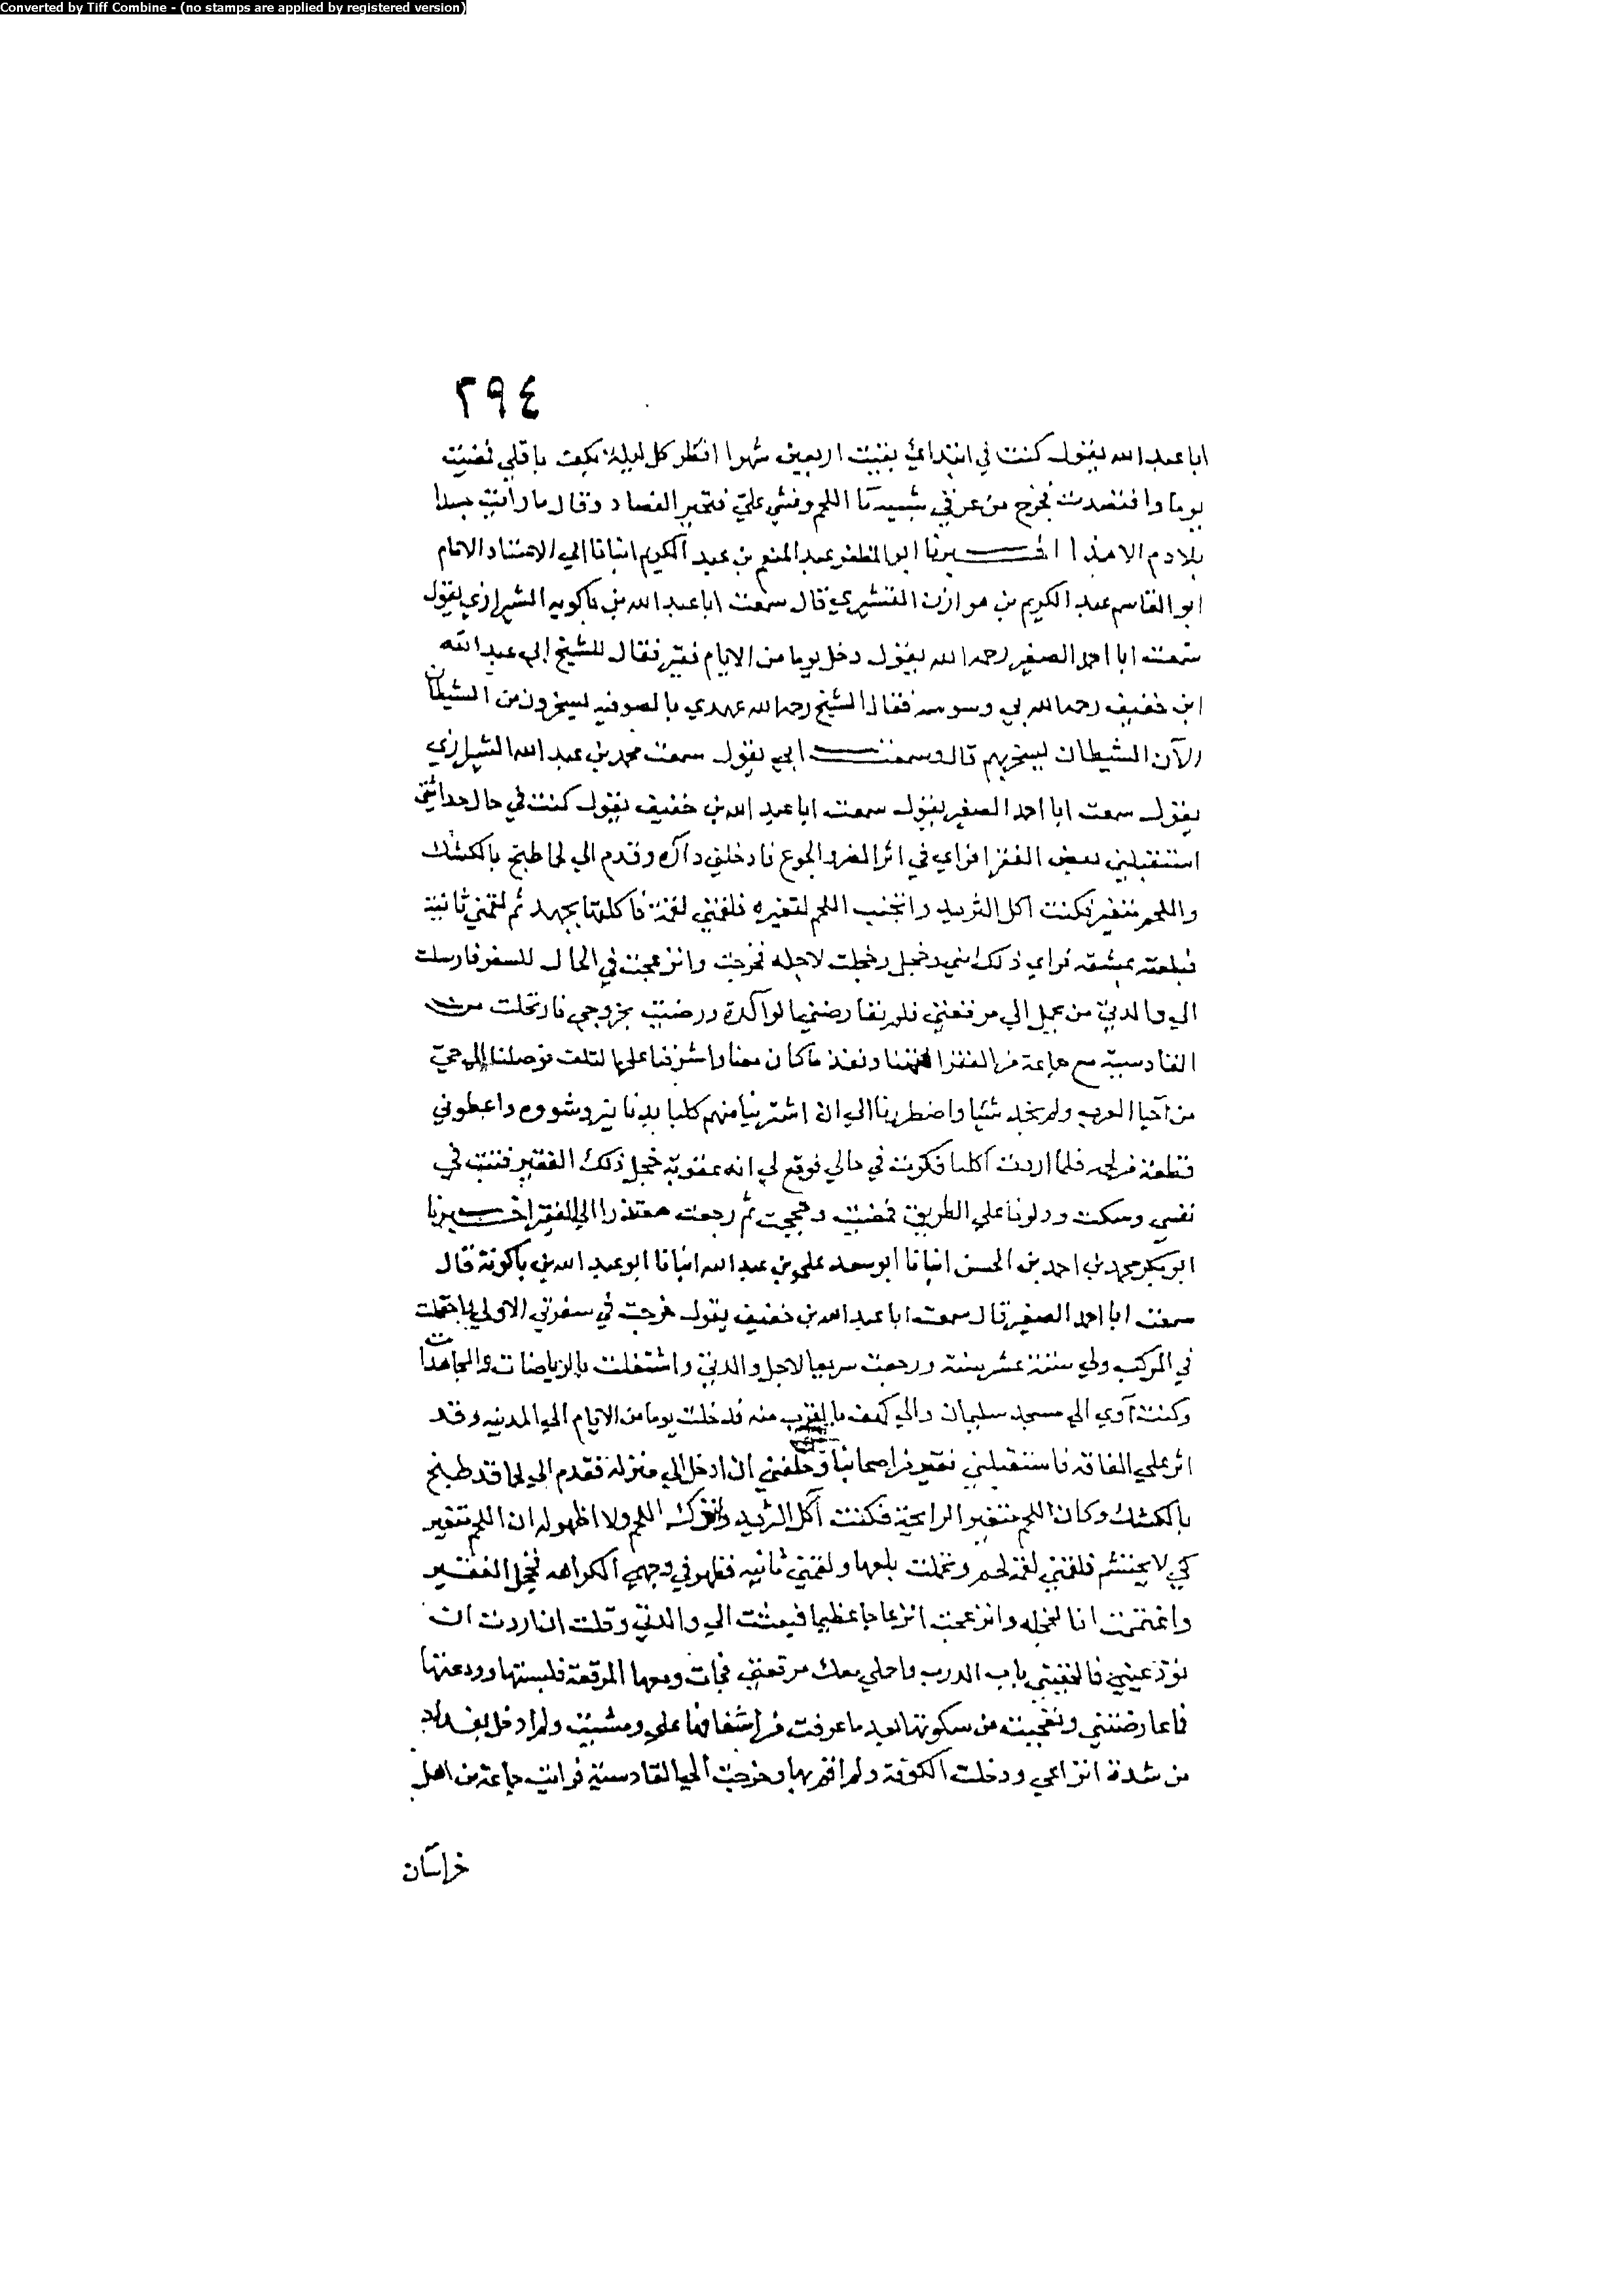 Converted by Tiff Combine - (no stamps are applied by registered version)
٢٩٤
ابا عبد الله يقول كنت في ابتدائي بقيت اربعين شهرا افطر كل ليلة بكف باقلي فمضيت
يوما وافتصدت فخرج من عرقي شبيه ما اللحم وغشي علي فتحير الفصاد وقال ما رايت جسدا
بلا دم الا هذا اخبرنا ابو المظفر عبد المنعم بن عبد الكريم انبانا ابي الاستاد الامام
ابو القاسم عبد الكريم بن هوازن القشيري قال سمعت ابا عبد الله بن باكويه الشيرازي يقول
سمعت ابا احمد الصغير رحمه الله يقول دخل يوما من الايام فقير فقال للشيخ ابي عبد الله
ابن خفيف رحمه الله بي وسوسه فقال الشيخ رحمه الله عهدي بالصوفيه يسخرون من الشيطان
الآن الشيطان يسخر بهم قال وسمعت ابي يقول سمعت محمد بن عبد الله الشيرازي
يقول سمعت ابا احمد الصغير يقول سمعت ابا عبد الله بن خفيف يقول كنت في حال حداثتي
استقبلني بعض الفقرا فراي في اثر الضر والجوع فادخلني داره وقدم الي لحما طبخ بالكشك
واللحم متغير فكنت اكل الثريد واتجنب اللحم لتغيره فلقمني لقمة فاكلتها بجهد ثم لقمني ثانية
فبلعته بمشقه فراي ذلك مني وخجل وخجلت لاجله فخرجت وانزعجت في الحال للسفر فارسلت
الي والدتي من يحمل الي مرقعتي فلم تعارضني الوالدة ورضيت بخروجي فارتحلت من
القادسية مع جماعة من الفقرا فتهنا ونفذ ما كان معنا واشرفنا علي التلف فوصلنا الي حي
من احيا العرب ولم نجد شيا واضطررنا الي ان اشترينا منهم كلبا بدنانير وشووه واعطوني
قطعة من لحمه فلما اردت اكله فكرت في حالي فوقع لي انه عقوبة خجل ذلك الفقير فتبت في
نفسي وسكت ودلونا علي الطريق فمضيت وحججت ثم رجعت معتذرا الي الفقير اخبرنا
ابو بكر محمد بن احمد بن الحسن انبانا ابو سعد علي بن عبد الله انبانا ابو عبد الله بن باكويه قال
سمعت ابا احمد الصغير قال سمعت ابا عبد الله بن خفيف يقول خرجت في سفرتي الاولي
في المركب ولي ستة عشر سنة ورجعت سريعا لاجل والدتي واشتغلت بالرياضات والمجاهدات
وكنت آوي الي مسجد سليمان والي كهف بالقرب منه فدخلت يوما من الايام الي المدينه وقد
اثر علي الفاقه فاستقبلني فقير من اصحابنا وحلفني ان ادخل الي منزله فقدم الي لحما قد طبخ
بالكشك وكان اللحم متغير الرايحة فكنت آكل الثريد واترك اللحم ولا اظهر له ان اللحم متغير
كي لا يحتشم فلقمني لقمة لحم وتحملت بلعها ولقمني ثانيه فظهر في وجهي الكراهه فخجل الفقير
واغتممت انا لخجله وانزعجت انزعاجا عظيما فبعثت الي والدتي وقلت ان اردت ان
تودعيني فالحقيني باب الدرب واحملي معك مرقعتي فجات ومعها المرقعة فلبستها وودعتها
فما عارضتني وتعجبت من سكوتها بعد ما عرفت من اشفاقها علي ومشيت ولم ادخل بغداد
من شدة انزعاجي ودخلت الكوفة ولم اقم بها وخرجت الي القادسية فرايت جماعة من اهل
خراسان